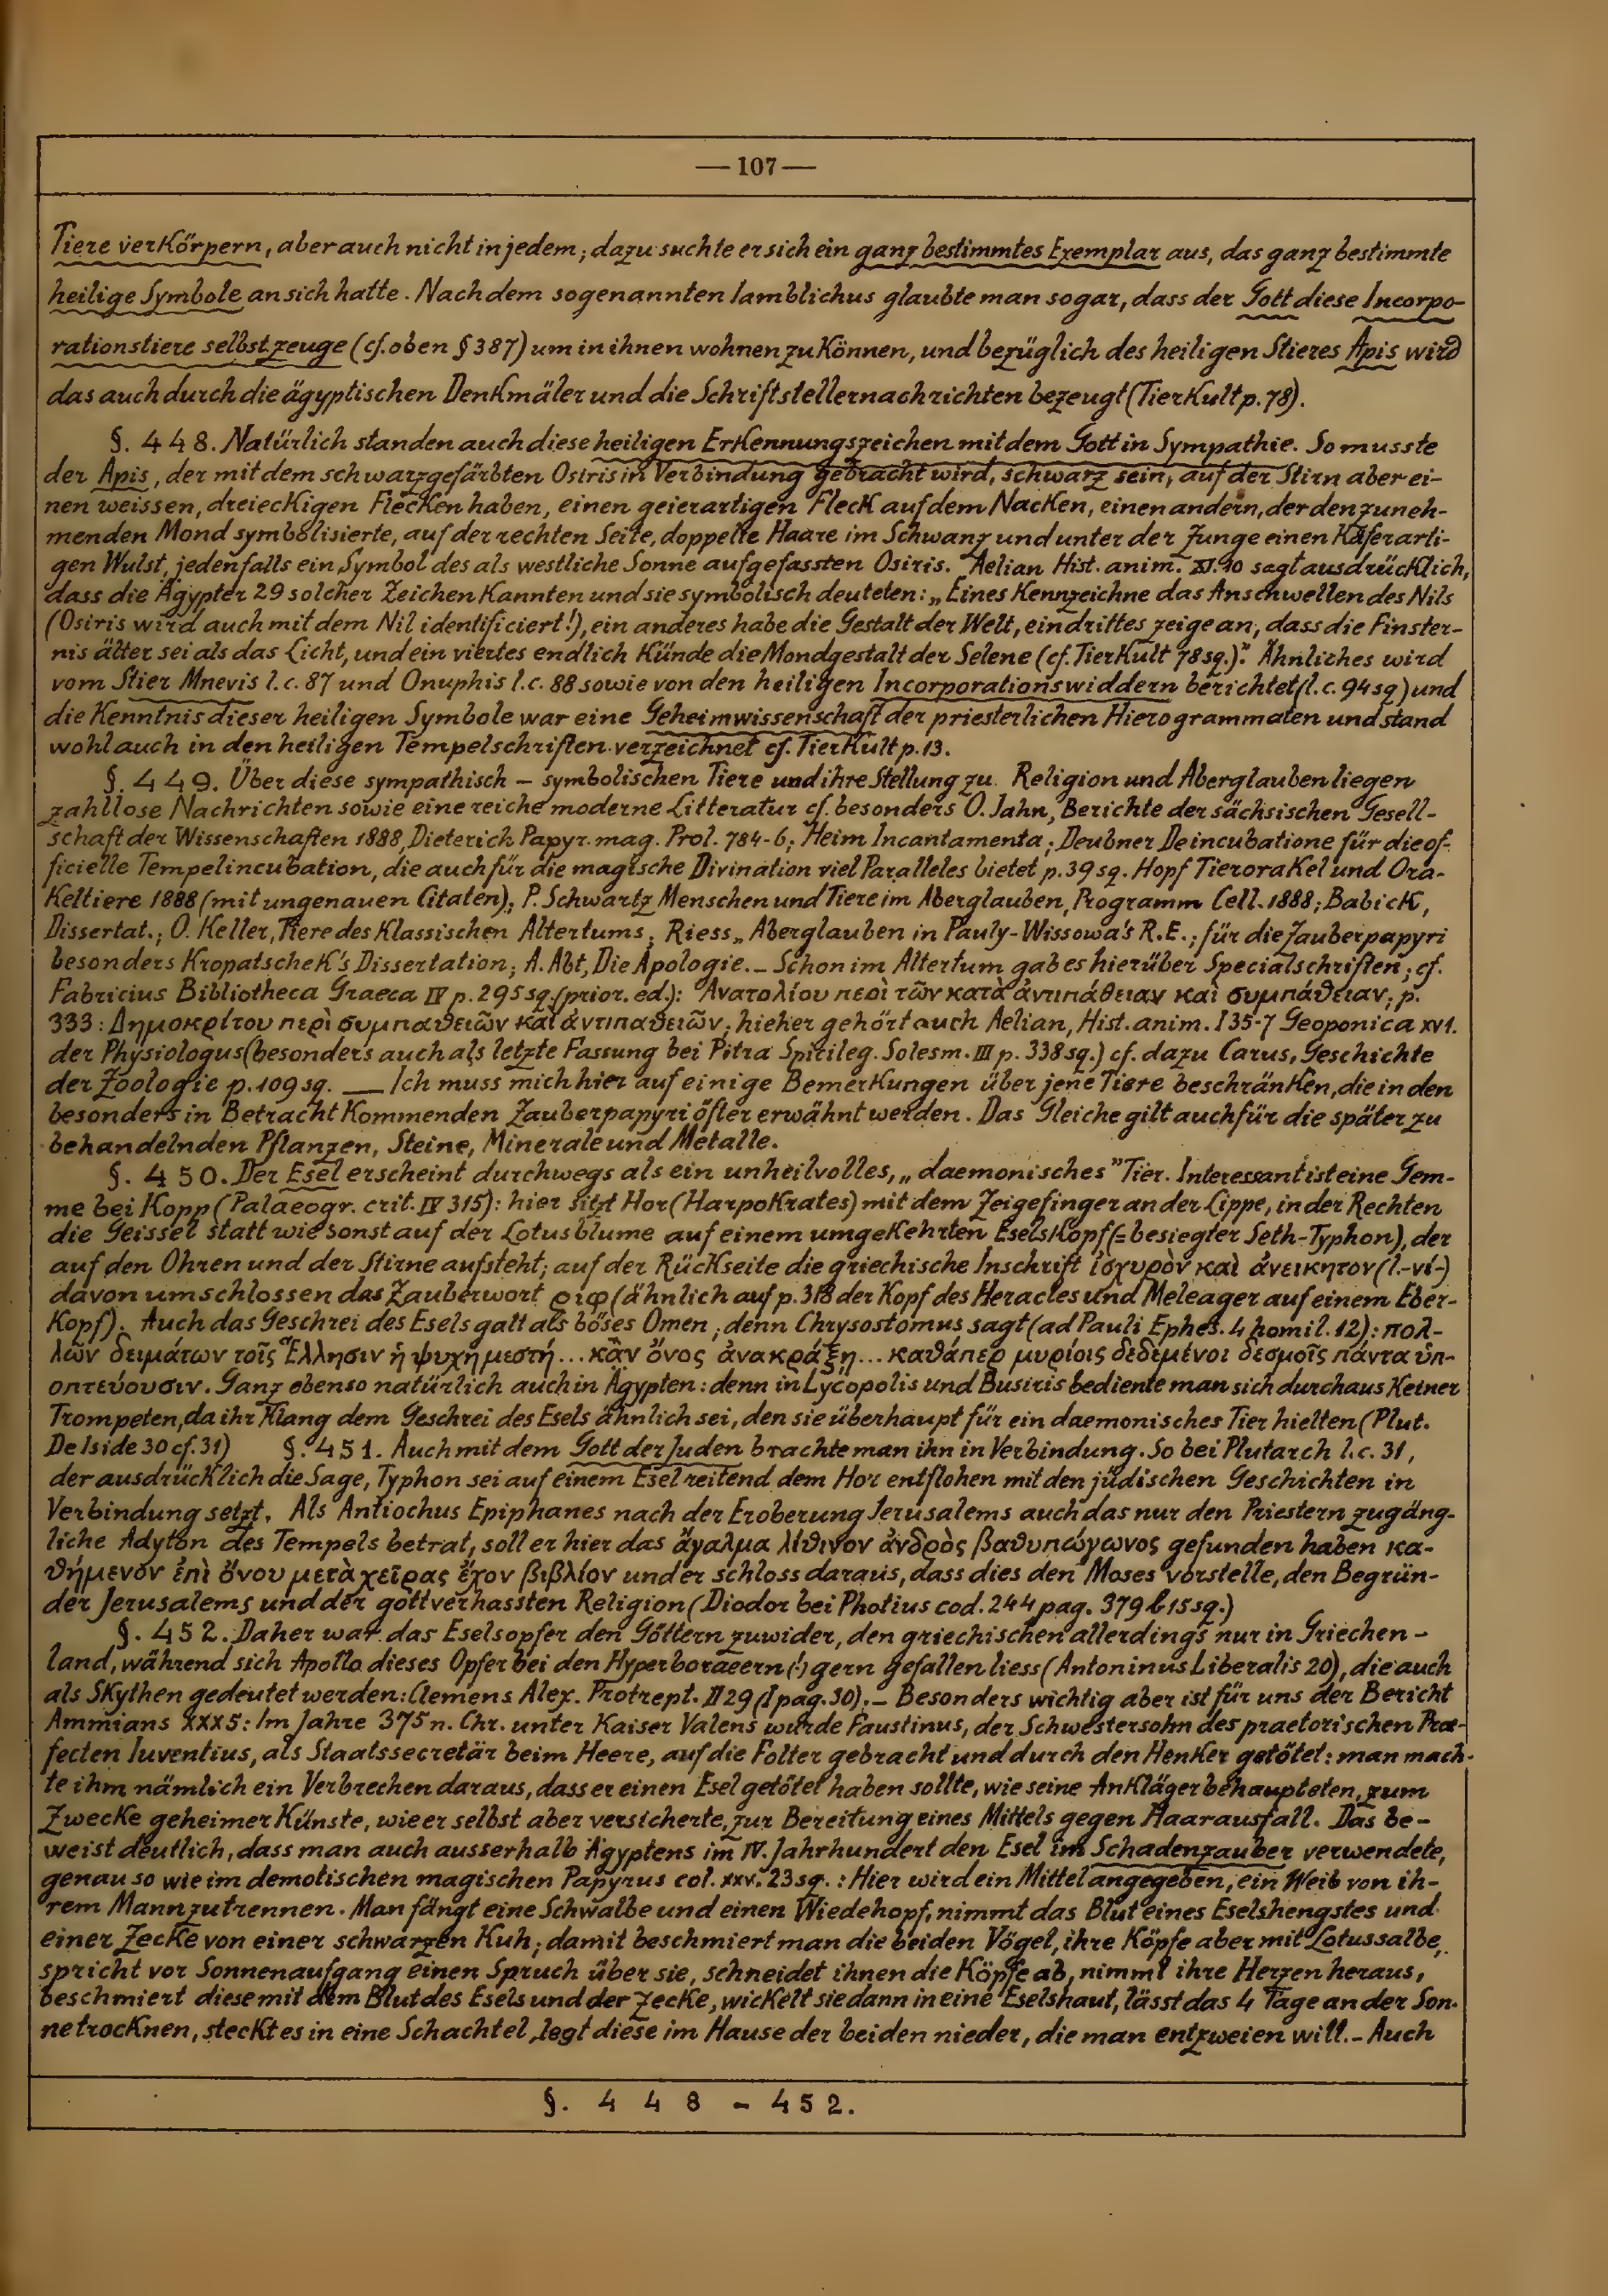 — 107 —
Tiere verkörpern, aber auch nicht in jedem; dazu suchte er sich ein ganz bestimmtes Exemplar aus, das ganz bestimmte
heilige Symbole an sich hatte. Nach dem sogenannten Iamblichus glaubte man sogar, dass der Gott diese Incorpo-
rationstiere selbst zeuge (cf. oben § 387) um in ihnen wohnen zu können, und bezüglich des heiligen Stieres Apis wird
das auch durch die ägyptischen Denkmäler und die Schriftstellernachrichten bezeugt (Tierkult p. 78).
§. 448. Natürlich standen auch diese heiligen Erkennungszeichen mit dem Gott in Sympathie. So musste
der Apis, der mit dem schwarzgefärbten Osiris in Verbindung gebracht wird, schwarz sein, auf der Stirn aber ei-
nen weissen, dreieckigen Flecken haben, einen geierartigen Fleck auf dem Nacken, einen andern, der den zuneh-
menden Mond symbolisierte, auf der rechten Seite, doppelte Haare im Schwanz und unter der Zunge einen käferarti-
gen Wulst, jedenfalls ein Symbol des als westliche Sonne aufgefassten Osiris. Aelian Hist. anim. XI. 10 sagt ausdrücklich,
dass die Ägypter 29 solcher Zeichen kannten und sie symbolisch deuteten: „Eines kennzeichne das Anschwellen des Nils
(Osiris wird auch mit dem Nil identificiert!), ein anderes habe die Gestalt der Welt, ein drittes zeige an, dass die Finster-
nis älter sei als das Licht, und ein viertes endlich künde die Mondgestalt der Selene (cf. Tierkult 78sq.)". Ähnliches wird
vom Stier Mnevis l.c. 87 und Onuphis l.c. 88 sowie von den heiligen Incorporationswiddern berichtet (l.c. 94sq) und
die Kenntnis dieser heiligen Symbole war eine Geheimwissenschaft der priesterlichen Hierogrammaten und stand
wohl auch in den heiligen Tempelschriften verzeichnet cf. Tierkult p. 13.
§. 449. Über diese sympathisch – symbolischen Tiere und ihre Stellung zu Religion und Aberglauben liegen
zahllose Nachrichten sowie eine reiche moderne Litteratur cf. besonders O. Jahn, Berichte der sächsischen Gesell-
schaft der Wissenschaften 1888, Dieterich Papyr. mag. Prol. 784-6; Heim Incantamenta; Deubner De incubatione für die of-
ficielle Tempelincubation, die auch für die magische Divination viel Paralleles bietet p. 39 sq. Hopf Tierorakel und Ora-
keltiere 1888 (mit ungenauen Citaten); P. Schwartz Menschen und Tiere im Aberglauben, Programm Cell. 1888; Babick,
Dissertat.; O. Keller, Tiere des Klassischen Altertums; Riess „Aberglauben in Pauly-Wissowa's R.E.; für die Zauberpapyri
besonders Kropatschek's Dissertation; A. Abt, Die Apologie. – Schon im Altertum gab es hierüber Specialschriften; cf.
Fabricius Bibliotheca Graeca IV p. 295 sq. (prior. ed.): Ἀνατολίου περὶ τῶν κατὰ ἀντιπάθειαν καὶ συμπάθειαν; p.
333: Δημοκρίτου περὶ συμπαθειῶν καὶ ἀντιπαθειῶν; hieher gehört auch Aelian, Hist. anim. I 35-7 Geoponica XV 1.
der Physiologus (besonders auch als letzte Fassung bei Pitra Spicileg. Solesm. III p. 338 sq.) cf. dazu Carus, Geschichte
der Zoologie p. 109 sg. — Ich muss mich hier auf einige Bemerkungen über jene Tiere beschränken, die in den
besonders in Betracht kommenden Zauberpapyri öfter erwähnt werden. Das Gleiche gilt auch für die später zu
behandelnden Pflanzen, Steine, Minerale und Metalle.
§. 450. Der Esel erscheint durchwegs als ein unheilvolles, „daemonisches" Tier. Interessant ist eine Gem-
me bei Kopp (Palaeogr. crit. IV 315): hier sitzt Hor (Harpokrates) mit dem Zeigefinger an der Lippe, in der Rechten
die Geissel statt wie sonst auf der Lotusblume auf einem umgekehrten Eselskopf (= besiegter Seth-Typhon), der
auf den Ohren und der Stirne aufsteht; auf der Rückseite die griechische Inschrift ἰσχυρὸν καὶ ἀνείκητον (l. -νί-)
davon umschlossen das Zauberwort ϱιφ (ähnlich auf p. 318 der Kopf des Heracles und Meleager auf einem Eber-
kopf). Auch das Geschrei des Esels galt als böses Omen; denn Chrysostomus sagt (ad Pauli Ephes. 4 homil. 12): πολ-
λῶν δειμάτων τοῖς Ἕλλησιν ἡ ψυχὴ μεστή... κἂν ὄνος ἀνακράξῃ... καθάπερ μυρίοις δεδεμένοι δεσμοῖς πάντα ὑπ-
οπτεύουσιν. Ganz ebenso natürlich auch in Ägypten: denn in Lycopolis und Busiris bediente man sich durchaus keiner
Trompeten, da ihr Klang dem Geschrei des Esels ähnlich sei, den sie überhaupt für ein daemonisches Tier hielten (Plut.
De Iside 30 cf. 31) §. 451. Auch mit dem Gott der Juden brachte man ihn in Verbindung. So bei Plutarch l.c. 31,
der ausdrücklich die Sage, Typhon sei auf einem Esel reitend dem Hor entflohen mit den jüdischen Geschichten in
Verbindung setzt. Als Antiochus Epiphanes nach der Eroberung Jerusalems auch das nur den Priestern zugäng-
liche Adyton des Tempels betrat, soll er hier das ἄγαλμα λίθινον ἀνδρὸς βαθυπώγωνος gefunden haben κα-
θήμενον ἐπὶ ὄνου μετὰ χεῖρας ἔχον βιβλίον und er schloss daraus, dass dies den Moses vorstelle, den Begrün-
der Jerusalems und der gottverhassten Religion (Diodor bei Photius cod. 244 pag. 379 b 15 sq.)
§. 452. Daher war das Eselsopfer den Göttern zuwider, den griechischen allerdings nur in Griechen-
land, während sich Apollo dieses Opfer bei den Hyperboraeern (!) gern gefallen liess (Antoninus Liberalis 20), die auch
als Skythen gedeutet werden: Clemens Alex. Protrept. II 29 (I pag. 30). – Besonders wichtig aber ist für uns der Bericht
Ammians XXX 5: Im Jahre 375 n. Chr. unter Kaiser Valens wurde Faustinus, der Schwestersohn des praetorischen Prae-
fecten Iuventius, als Staatssecretär beim Heere, auf die Folter gebracht und durch den Henker getötet: man mach-
te ihm nämlich ein Verbrechen daraus, dass er einen Esel getötet haben sollte, wie seine Ankläger behaupteten, zum
Zwecke geheimer Künste, wie er selbst aber versicherte, zur Bereitung eines Mittels gegen Haarausfall. Das be-
weist deutlich, dass man auch ausserhalb Ägyptens im IV. Jahrhundert den Esel im Schadenzauber verwendete,
genau so wie im demotischen magischen Papyrus col. XXV. 23 sq.: Hier wird ein Mittel angegeben, ein Weib von ih-
rem Mann zu trennen. Man fängt eine Schwalbe und einen Wiedehopf, nimmt das Blut eines Eselshengstes und
einer Zecke von einer schwarzen Kuh; damit beschmiert man die beiden Vögel, ihre Köpfe aber mit Lotussalbe,
spricht vor Sonnenaufgang einen Spruch über sie, schneidet ihnen die Köpfe ab, nimmt ihre Herzen heraus,
beschmiert diese mit dem Blut des Esels und der Zecke, wickelt sie dann in eine Eselshaut, lässt das 4 Tage an der Son-
ne trocknen, steckt es in eine Schachtel, legt diese im Hause der beiden nieder, die man entzweien will. – Auch
§. 448 – 452.